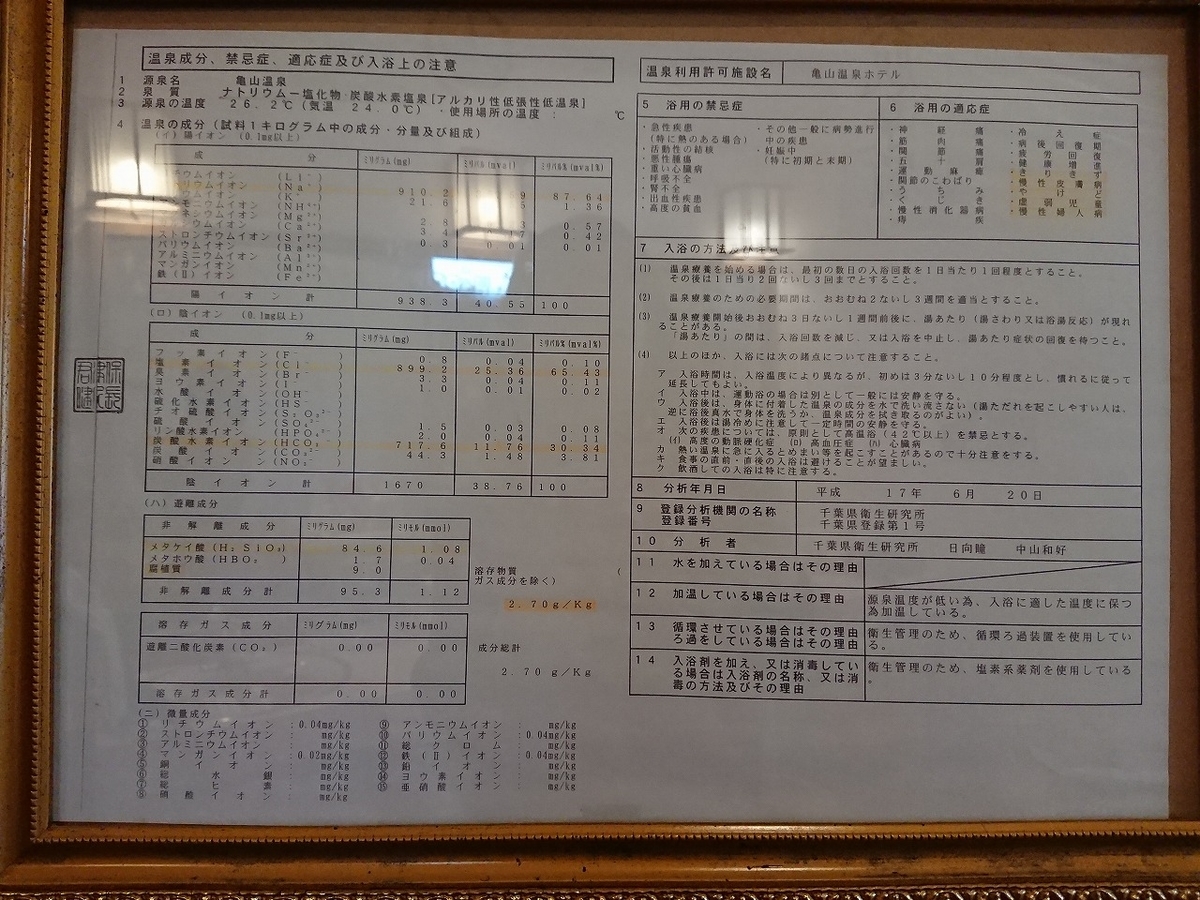 温泉成分、禁忌症、適応症及び入浴上の注意
1 源泉名 亀山温泉
2 泉質 ナトリウム―塩化物・炭酸水素塩泉[アルカリ性低張性低温泉]
3 源泉の温度 26.2℃(気温 24.0℃) ・使用場所の温度 : ℃
4 温泉の成分(試料1キログラム中の成分・分量及び組成)
(イ)陽イオン (0.1mg以上)
成 分 ミリグラム(mg) ミリバル(mval) ミリバル%(mval%)
ウムイオン (Li⁺)
リウムイオン (Na⁺) 910.2 9 87.64
(K⁺) 21.6 1.36
モニウムイオン (NH⁴⁺)
ネシウムイオン (Mg²⁺)
ウムイオン (Ca²⁺) 2.8 3 0.57
ストロンチウムイオン (Sr²⁺) 3.4 17 0.42
バリウムイオン (Ba²⁺) 0.3 0.01 0.01
アルミニウムイオン (Al³⁺)
マンガンイオン (Mn²⁺)
鉄(Ⅱ)イオン (Fe²⁺)
陽イオン計 938.3 40.55 100
(ロ)陰イオン (0.1mg以上)
成 分 ミリグラム(mg) ミリバル(mval) ミリバル%(mval%)
フッ素イオン (F⁻) 0.8 0.04 0.10
塩素イオン (Cl⁻) 899.2 25.36 65.43
臭素イオン (Br⁻) 3.3 0.04 0.11
ヨウ素イオン (I⁻) 1.0 0.01 0.02
水酸イオン (OH⁻)
硫化水素イオン (HS⁻)
チオ硫酸イオン (S₂O₃²⁻)
硫酸イオン (SO₄²⁻) 1.5 0.03 0.08
リン酸水素イオン (HPO₄²⁻) 2.0 0.04 0.11
炭酸水素イオン (HCO₃⁻) 717.6 11.76 30.34
炭酸イオン (CO₃²⁻) 44.3 1.48 3.81
硝酸イオン (NO₂⁻)
陰イオン計 1670 38.76 100
(ハ)遊離成分
非解離成分 ミリグラム(mg) ミリモル(mmol)
メタケイ酸(H₂SiO₃) 84.6 1.08
メタホウ酸(HBO₂) 1.7 0.04
腐植質 9.0
非解離成分計 95.3 1.12
溶存物質 (
ガス成分を除く)
2.70g/Kg
溶存ガス成分 ミリグラム(mg) ミリモル(mmol)
遊離二酸化炭素(CO₂) 0.00 0.00
溶存ガス成分計 0.00 0.00
成分総計
2.70g/Kg
(ニ)微量成分
① リチウムイオン :0.04mg/kg
② ストロンチウムイオン : mg/kg
③ アルミニウムイオン : mg/kg
④ マンガンイオン :0.02mg/kg
⑤ 銅イオン : mg/kg
⑥ 総水銀 : mg/kg
⑦ 総ヒ素 : mg/kg
⑧ 硝酸イオン : mg/kg
⑨ アンモニウムイオン : mg/kg
⑩ バリウムイオン :0.04mg/kg
⑪ 総クロム : mg/kg
⑫ 鉄(Ⅱ)イオン :0.04mg/kg
⑬ 鉛イオン : mg/kg
⑭ ヨウ素イオン : mg/kg
⑮ 亜硝酸イオン : mg/kg
温泉利用許可施設名 亀山温泉ホテル
5 浴用の禁忌症
・急性疾患
(特に熱のある場合)
・活動性の結核
・悪性腫瘍
・重い心臓病
・呼吸不全
・腎不全
・出血性疾患
・高度の貧血
・その他一般に病勢進行
中の疾患
・妊娠中
(特に初期と末期)
6 浴用の適応症
・神経痛
・筋肉痛
・関節痛
・五十肩
・運動麻痺
・関節のこわばり
・うちみ
・くじき
・慢性消化器病
・痔疾
・冷え症
・病後回復期
・疲労回復
・健康増進
・きりきず
・慢性皮膚病
・やけど
・虚弱児童
・慢性婦人病
7 入浴の方法及び注意
(1) 温泉療養を始める場合は、最初の数日の入浴回数を1日当たり1回程度とすること。
その後は1日当り2回ないし3回までとすること。
(2) 温泉療養のための必要期間は、おおむね2ないし3週間を適当とすること。
(3) 温泉療養開始後おおむね3日ないし1週間前後に、湯あたり(湯さわり又は浴湯反応)が現れ
ることがある。
「湯あたり」の間は、入浴回数を減じ、又は入浴を中止し、湯あたり症状の回復を待つこと。
(4) 以上のほか、入浴には次の諸点について注意すること。
ア 入浴時間は、入浴温度により異なるが、初めは3分ないし10分程度とし、慣れるに従って
延長してもよい。
イ 入浴中は、運動浴の場合は別として一般には安静を守る。
ウ 入浴後は、身体に付着した温泉の成分を水で洗い流さない(湯ただれを起こしやすい人は、
逆に浴後真水で身体を洗うか、温泉成分を拭き取るのがよい)。
エ 入浴後は湯冷めに注意して一定時間の安静を守る。
オ 次の疾患については、原則として高温浴(42℃以上)を禁忌とする。
(イ) 高度の動脈硬化症 (ロ) 高血圧症 (ハ) 心臓病
カ 熱い温泉に急に入るとめまい等を起こすことがあるので十分注意をする。
キ 食事の直前・直後の入浴は避けることが望ましい。
ク 飲酒しての入浴は特に注意する。
8 分析年月日 平成 17年 6月 20日
9 登録分析機関の名称 千葉県衛生研究所
登録番号 千葉県登録第1号
10 分析者 千葉県衛生研究所 日向瞳 中山和好
11 水を加えている場合はその理由
12 加温している場合はその理由 源泉温度が低い為、入浴に適した温度に保つ
為加温している。
13 循環させている場合はその理由 衛生管理のため、循環ろ過装置を使用してい
ろ過をしている場合はその理由 る。
14 入浴剤を加え、又は消毒してい 衛生管理のため、塩素系薬剤を使用している
る場合は入浴剤の名称、又は消 。
毒の方法及びその理由